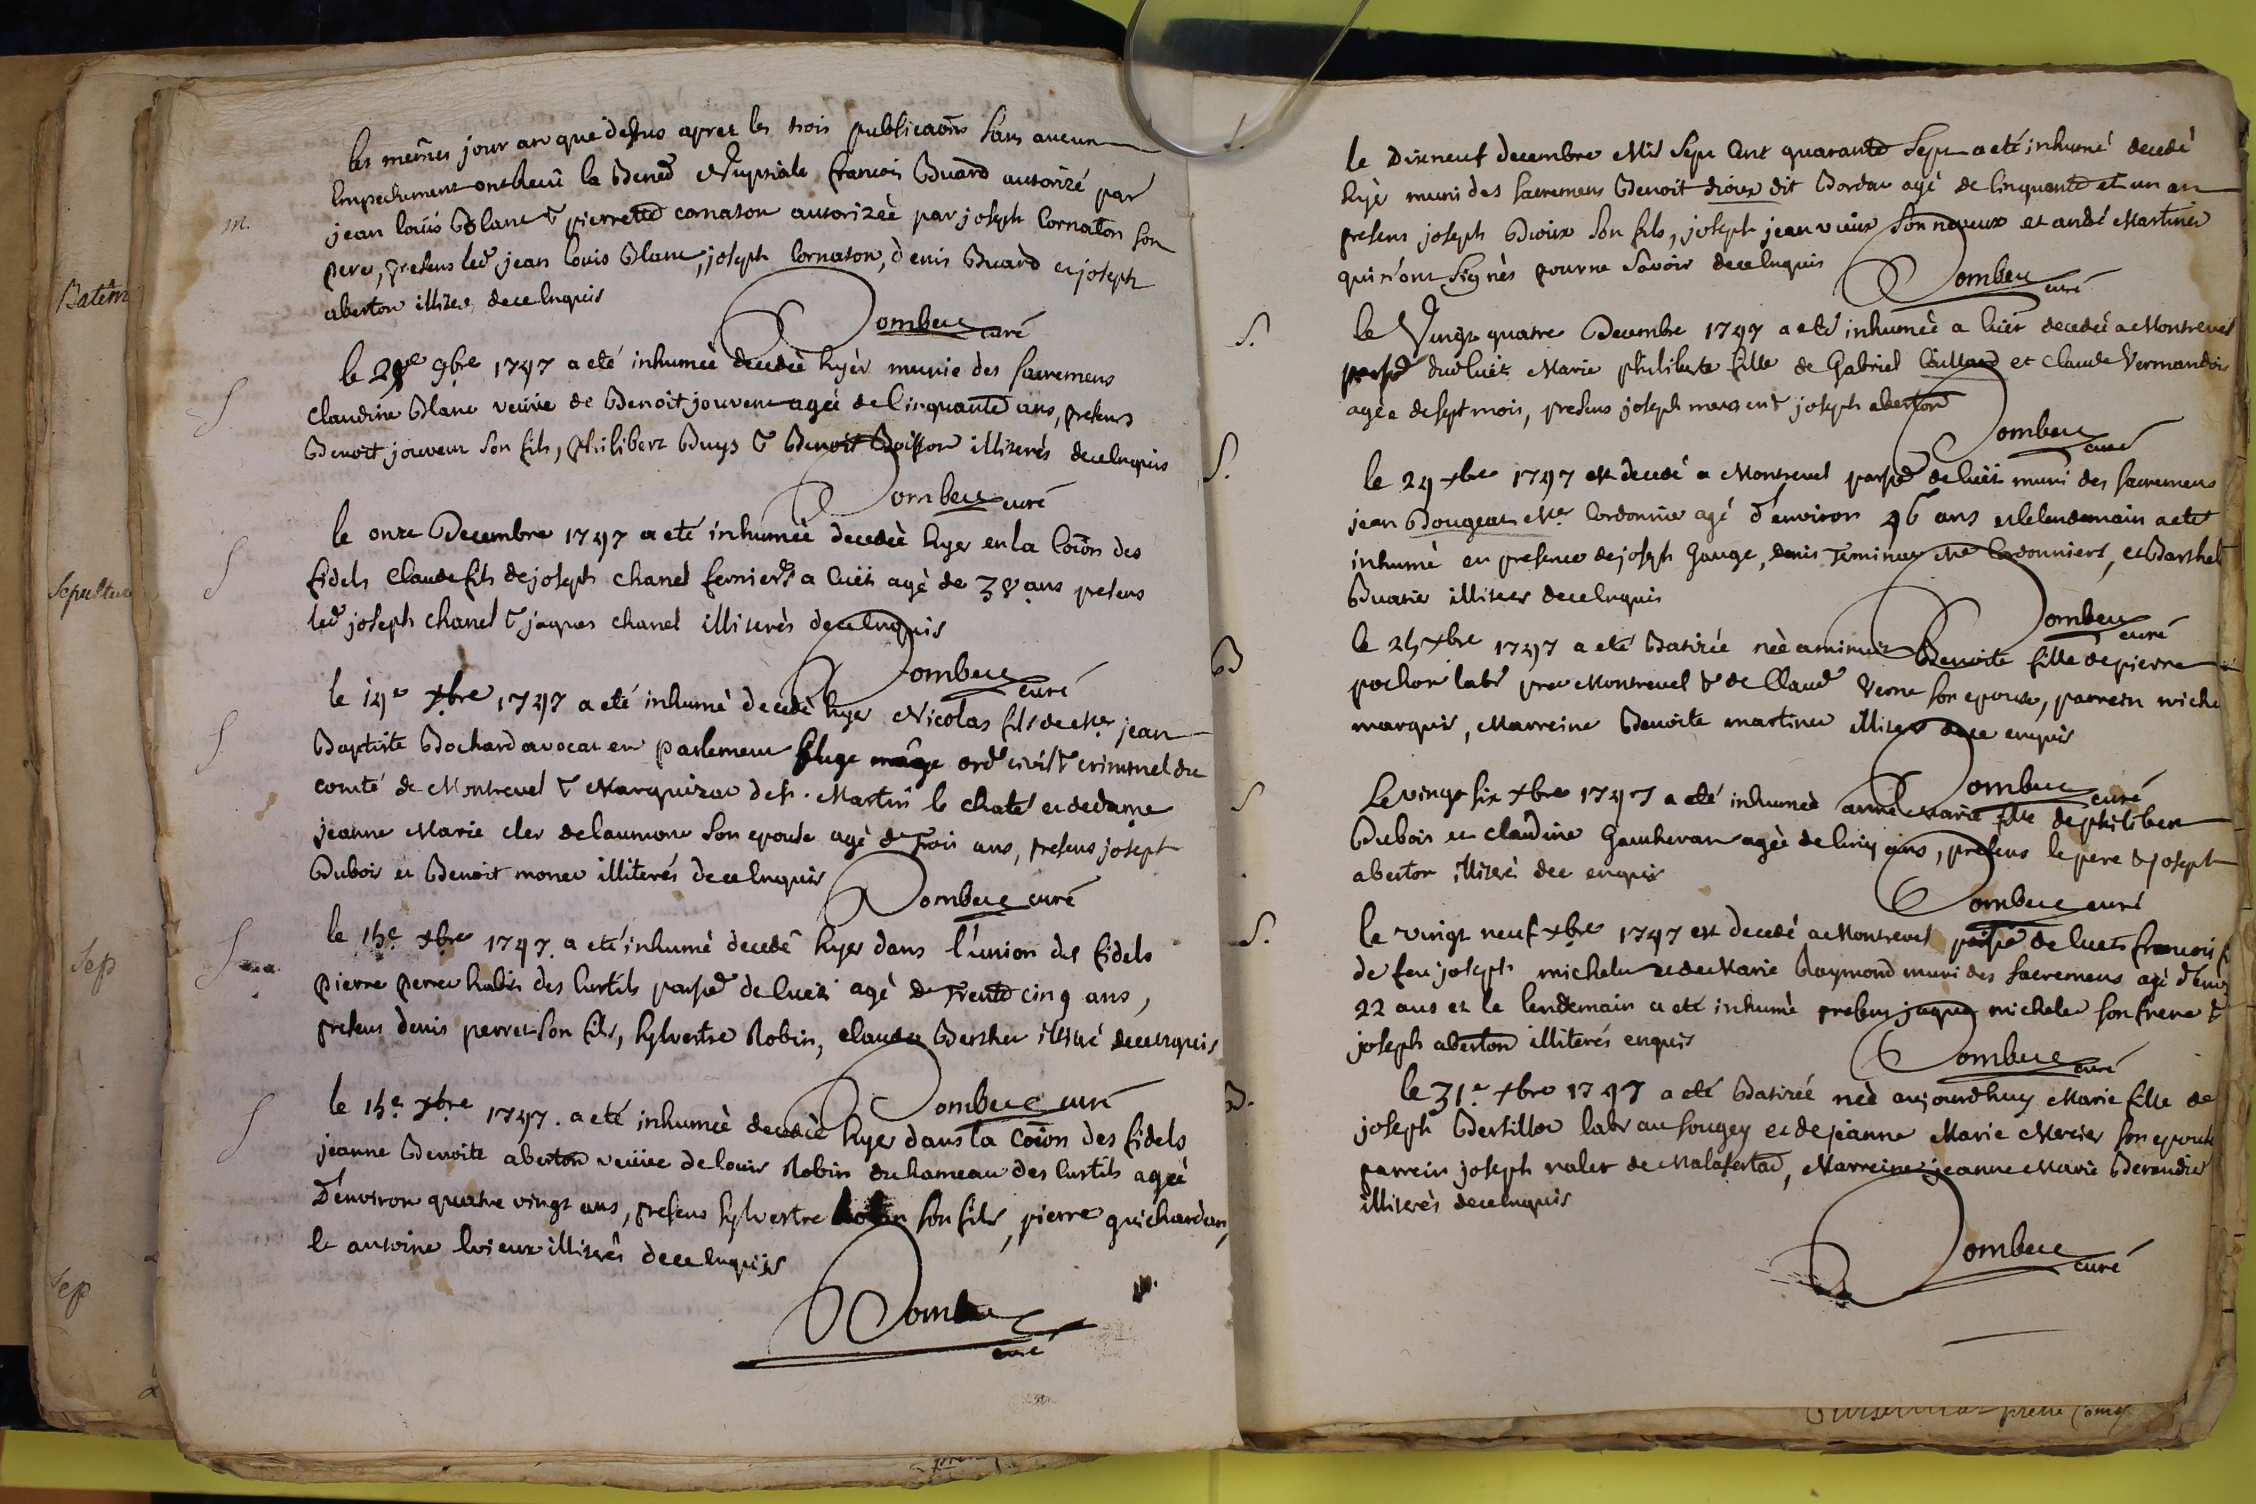 Batem
Sepulture
Sep
Sep
m.
les mêmes jour an que dessus apret les trois publicaons sans aucun
Empechement ont Receu la Bened Nuptiale francois Buard autorizé par
jean loüis Blanc & pierrette cornaton autorizée par joseph Cornaton son
pere, presens led jean Louis Blanc, joseph Cornaton, denis Buard et joseph
aberton illiter de ce Enquis
Dombeuc curé
S
le 28e 9bre 1747 a eté inhumeé decedeè hyèr munie des sacremens
claudine Blanc veüve de Benoit jouvent ageé de Cinquante ans, presens
Benoit jouvent son fils, philibert Buys & Benoit Boisson illiterés de ce Enquis
Dombeuc curé
S
le onze Decembre 1747 a eté inhumeé decedeè hyer en la Coïon des
fidels Claude fils de joseph chanel fermiers a Cuèt agè de 38 ans presens
led joseph chanel & jaques chanel illiterès de ce Enquis
Dombeuc curé
S
le 14e xbre 1747 a eté inhumè decedé hyer Nicolas fils de Mer jean
Baptiste Bochard avocat en parlement juge mage ord civil & criminel du
comté de Montrevel & Marquizat de St. Martin le chatel et de dame
jeanne Marie cler de laumone son epouse agè de Trois ans, presens joseph
Dubois et Benoit monet illiterés de ce Enquis
Dombeuc curé
S
le 15e xbre 1747. a eté inhumè decedé hyer dans l'union des fidels
pierre perret habit des Curtils parspe de Cuet agè de Trente cinq ans,
presens denis perret son fils, sylvestre Robin, claude Berthet illitré de ce enquis
Dombeuc curé
S
le 15e xbre 1747. a eté inhumeè decedeè hyer dans la Coïon des fidels
jeanne Benoite aberton veüve de louis Robin du hameau des Curtils ageé
D'environ quatre vingt ans, presens sylvestre Robin son fils, pierre guichardan,
& antoine levieux illiterês de ce Enquis
Dombeuc
curé
le Dixneuf decembre Mil sept Cent quarante sept a eté inhumé decedé
hyè muni des sacremens Benoit dioux dit Bordat agé de Cinquante et un an
presens joseph Dioux son fils, joseph jean vieux son neveux et andé Martinet
qui n'ont signès pour ne savoir de ce Enquis
Dombeuc curé
S.
le Vingt quatre Decembre 1747 a eté inhumeè a Cuèt decedeé a Montrevel
parspe dud Cuèt Marie philiberte fille de Gabriel Caillard et claude Vermandois
ageé de sept mois, presens joseph morgent & joseph aberton
Dombeuc curé
S.
le 24 xbre 1747 est decedé a Montrevel parspe de Cuèt muni des sacremens
jean Bougeat Mer Cordonnier agé d'environ 46 ans et le lendemain a eté
inhumé en presence de joseph Gauge, denis Teminet Me Cordonniers, et Barthel
Buatier illiteres de ce Enquis
Dombeuc curé
B
le 25 xbre 1747 a eté Batizée neè a minuit Benoite fille de pierre
pochon labr pres Montrevel & de Claud Verne son epouse, parrein miche
marquis, Marreine Benoite martinet illiters de ce enquis
Dombeuc curé
S
Le vingt six xbre 1747 a eté inhumeé anne Marie fille de philibert
Dubois et claudine Gautheran ageè de Cinq ans, presens le pere & joseph
aberton illiterè de ce enquis
Dombeuc curé
S.
le vingt neuf xbre 1747 est decedé a Montrevel parspe de Cuet francois f
de feu joseph michelet et de Marie Raymond muni des sacremens agé d'envi
22 ans et le lendemain a eté inhumè presens jaques michelet son frere &
joseph aberton illiterés enquis
Dombeuc curé
B.
le 31e xbre 1747 a eté Batizeé neè aujourdhuy Marie fille de
joseph Bertillot labr au sougey et de jeanne Marie Mercier son epouse
parrein joseph ralet de Malafertad, Marreine jeanne Marie Beraudie
illiterès de ce Enquis
Dombeuc
curé